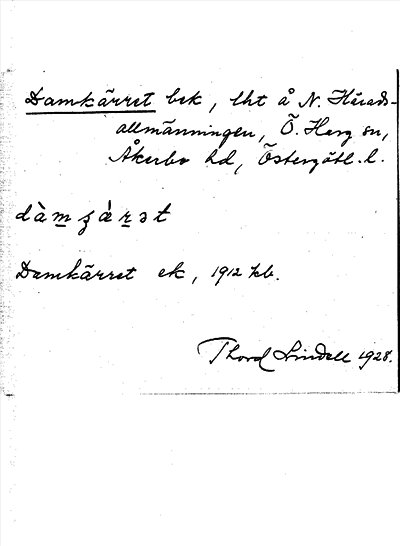 Damkärret bek, lht å N. Härads-
allmänningen, Ö. Harg sn,
Åkerbo hd, Östergötl. l.
dàm̲ʂær̲ət
Damkärret ek, 1912 kb.
Thord Lindell 1928.